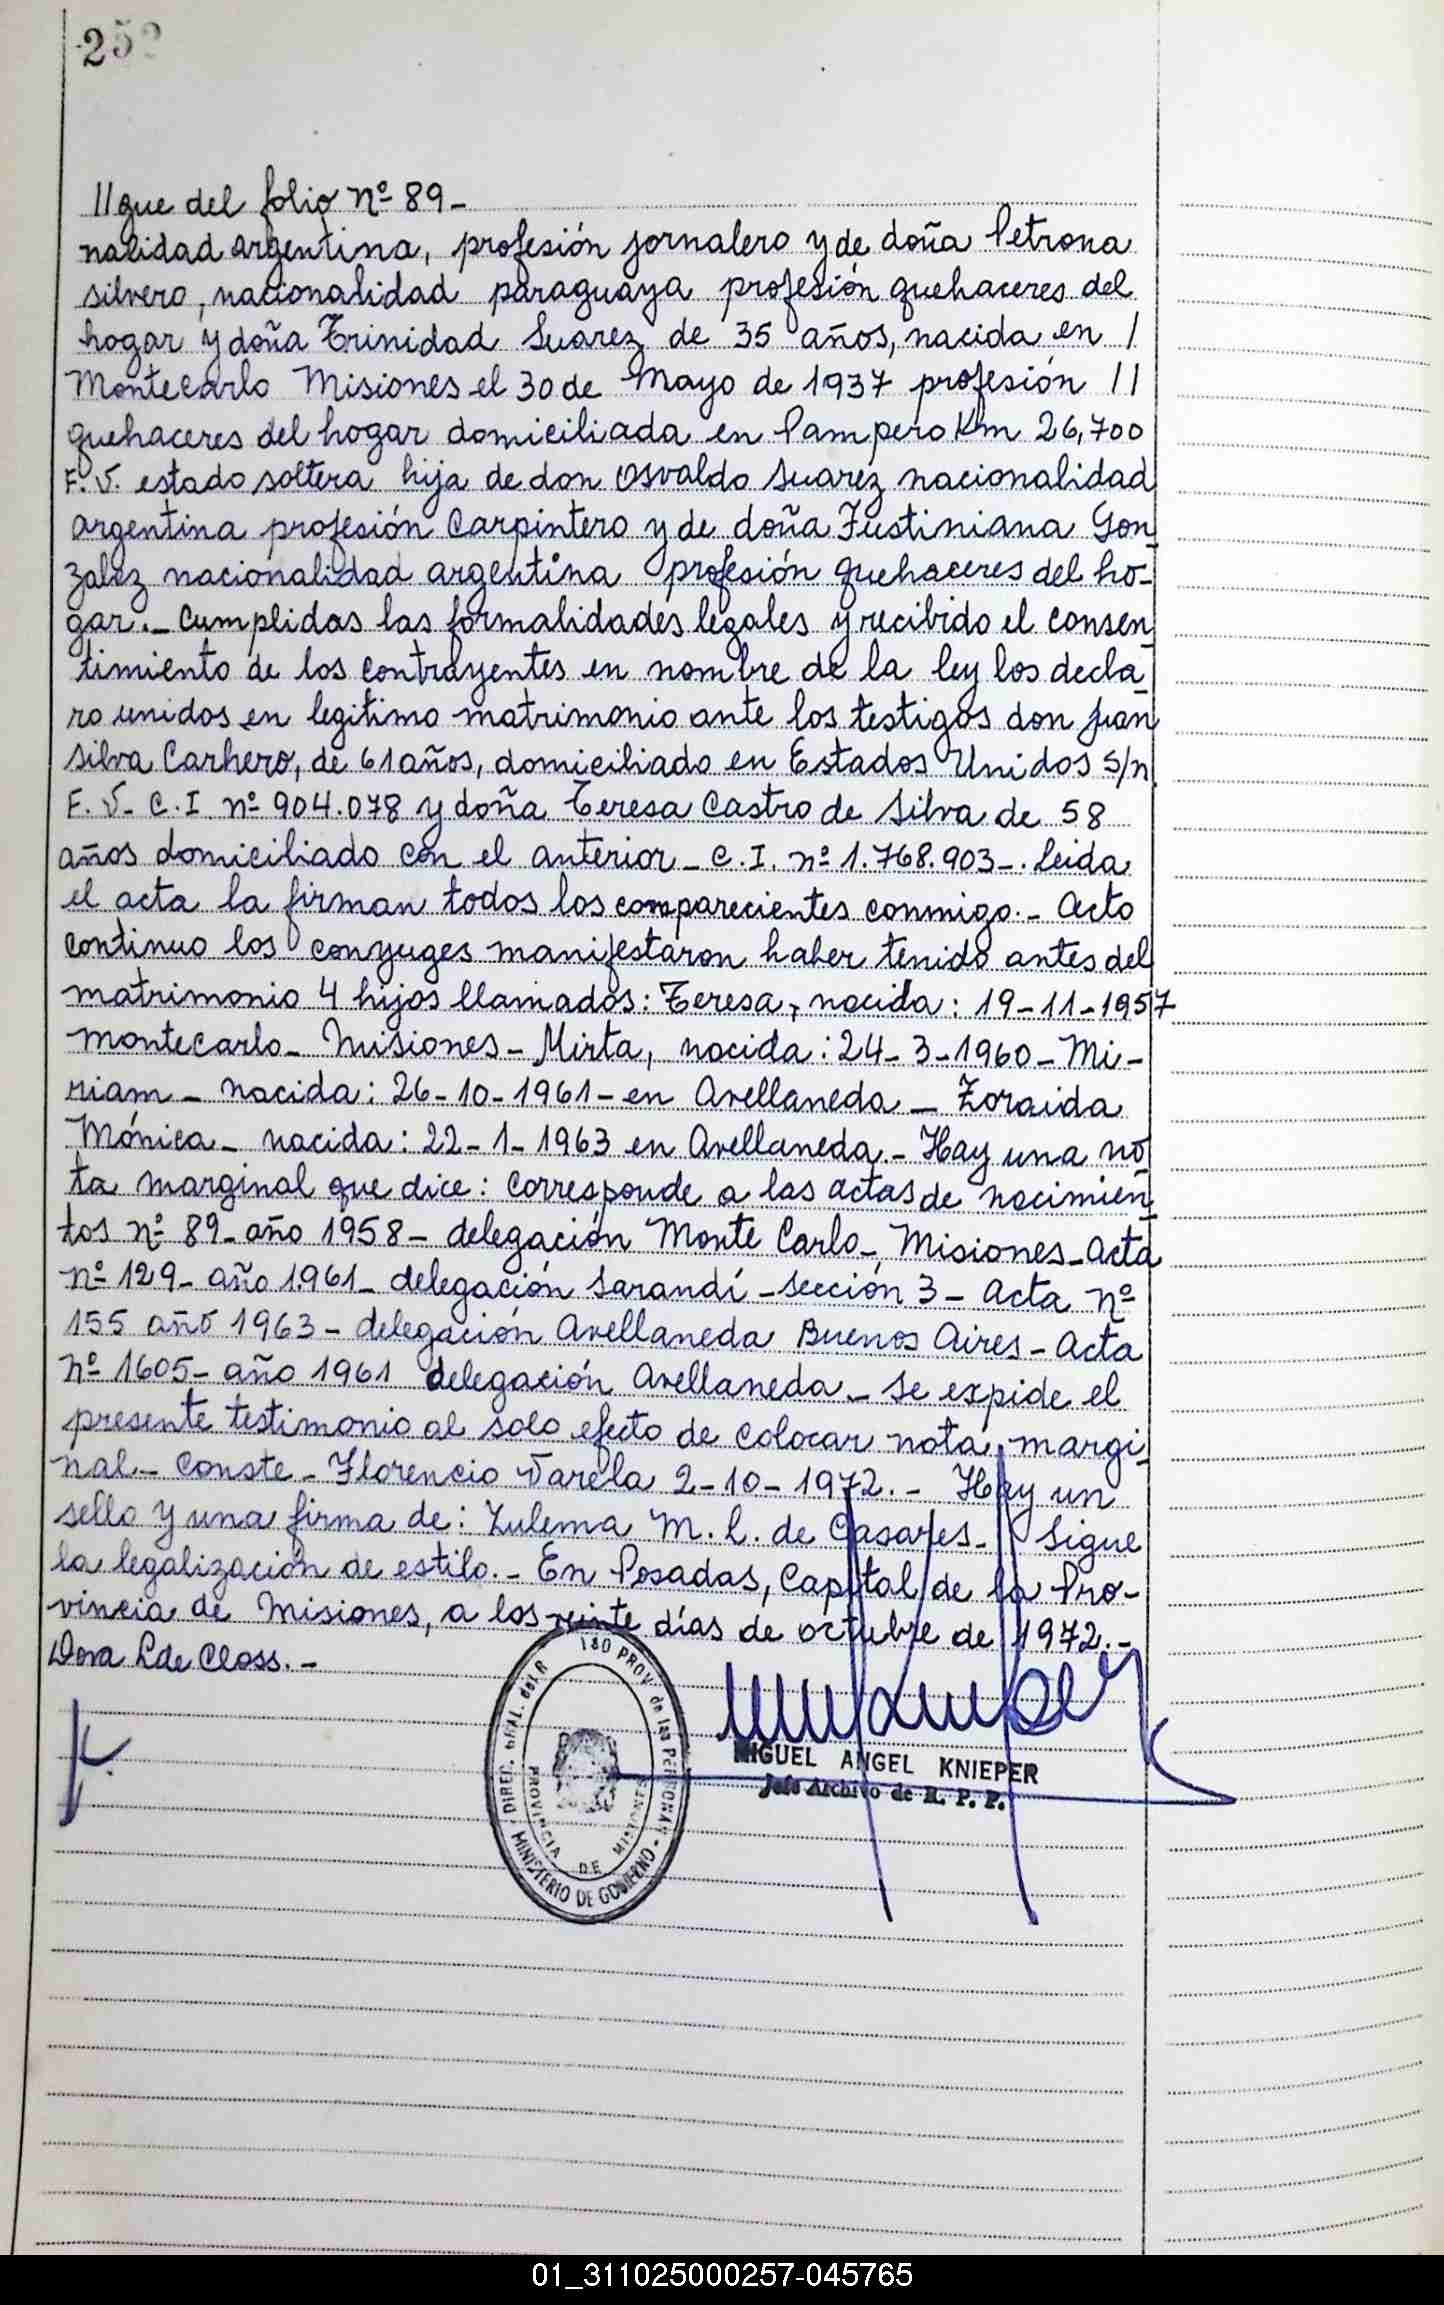 252
//que del folio nº 89-
nalidad argentina, profesión jornalero y de doña Petrona
silvero, nacionalidad paraguaya profesión quehaceres del
hogar y doña Trinidad Suarez de 35 años, nacida en /
Montecarlo Misiones el 30 de Mayo de 1937 profesión //
quehaceres del hogar domiciliada en Pampero Km 26,700
F.V. estado soltera hija de don Osvaldo Suarez nacionalidad
argentina profesión Carpintero y de doña Justiniana Gon-
zalez nacionalidad argentina profesión quehaceres del ho-
gar.- Cumplidas las formalidades legales y recibido el consen-
timiento de los contrayentes en nombre de la ley los decla-
ro unidos en legitimo matrimonio ante los testigos don Juan
Silva Carhero, de 61 años, domiciliado en Estados Unidos s/n
F.V- C.I nº 904.078 y doña Teresa Castro de Silva de 58
años domiciliado con el anterior- C.I. nº 1.768.903-. Leida
el acta la firman todos los comparecientes conmigo.- Acto
continuo los conyuges manifestaron haber tenido antes del
matrimonio 4 hijos llamados: Teresa, nacida: 19-11-1957
Montecarlo- Misiones- Mirta, nacida: 24-3-1960- Mi-
riam- nacida: 26-10-1961- en Avellaneda- Zoraida
Mónica- nacida: 22-1-1963 en Avellaneda.- Hay una no-
ta marginal que dice: Corresponde a las actas de nacimien-
tos nº 89- año 1958- delegación Monte Carlo- Misiones- Acta
nº 129- año 1.961- delegación Sarandí- sección 3- Acta nº
155 año 1963- delegación Avellaneda Buenos Aires- Acta
nº 1605- año 1961 delegación Avellaneda- se expide el
presente testimonio al solo efecto de colocar nota margi-
nal- Conste- Florencio Varela 2-10-1972.- Hay un
sello y una firma de: Zulema M. L. de Casares- Sigue
la legalización de estilo.- En Posadas, Capital de la Pro-
vincia de Misiones, a los veinte días de octubre de 1972.-
Dora L de Closs.-
DIREC. GRAL. del R
PROV. de las PERSONAS - MINISTERIO DE GOBIERNO
PROVINCIA DE MISIONES
MIGUEL ANGEL KNIEPER
Jefe Archivo de R. P. P.
01_311025000257-045765